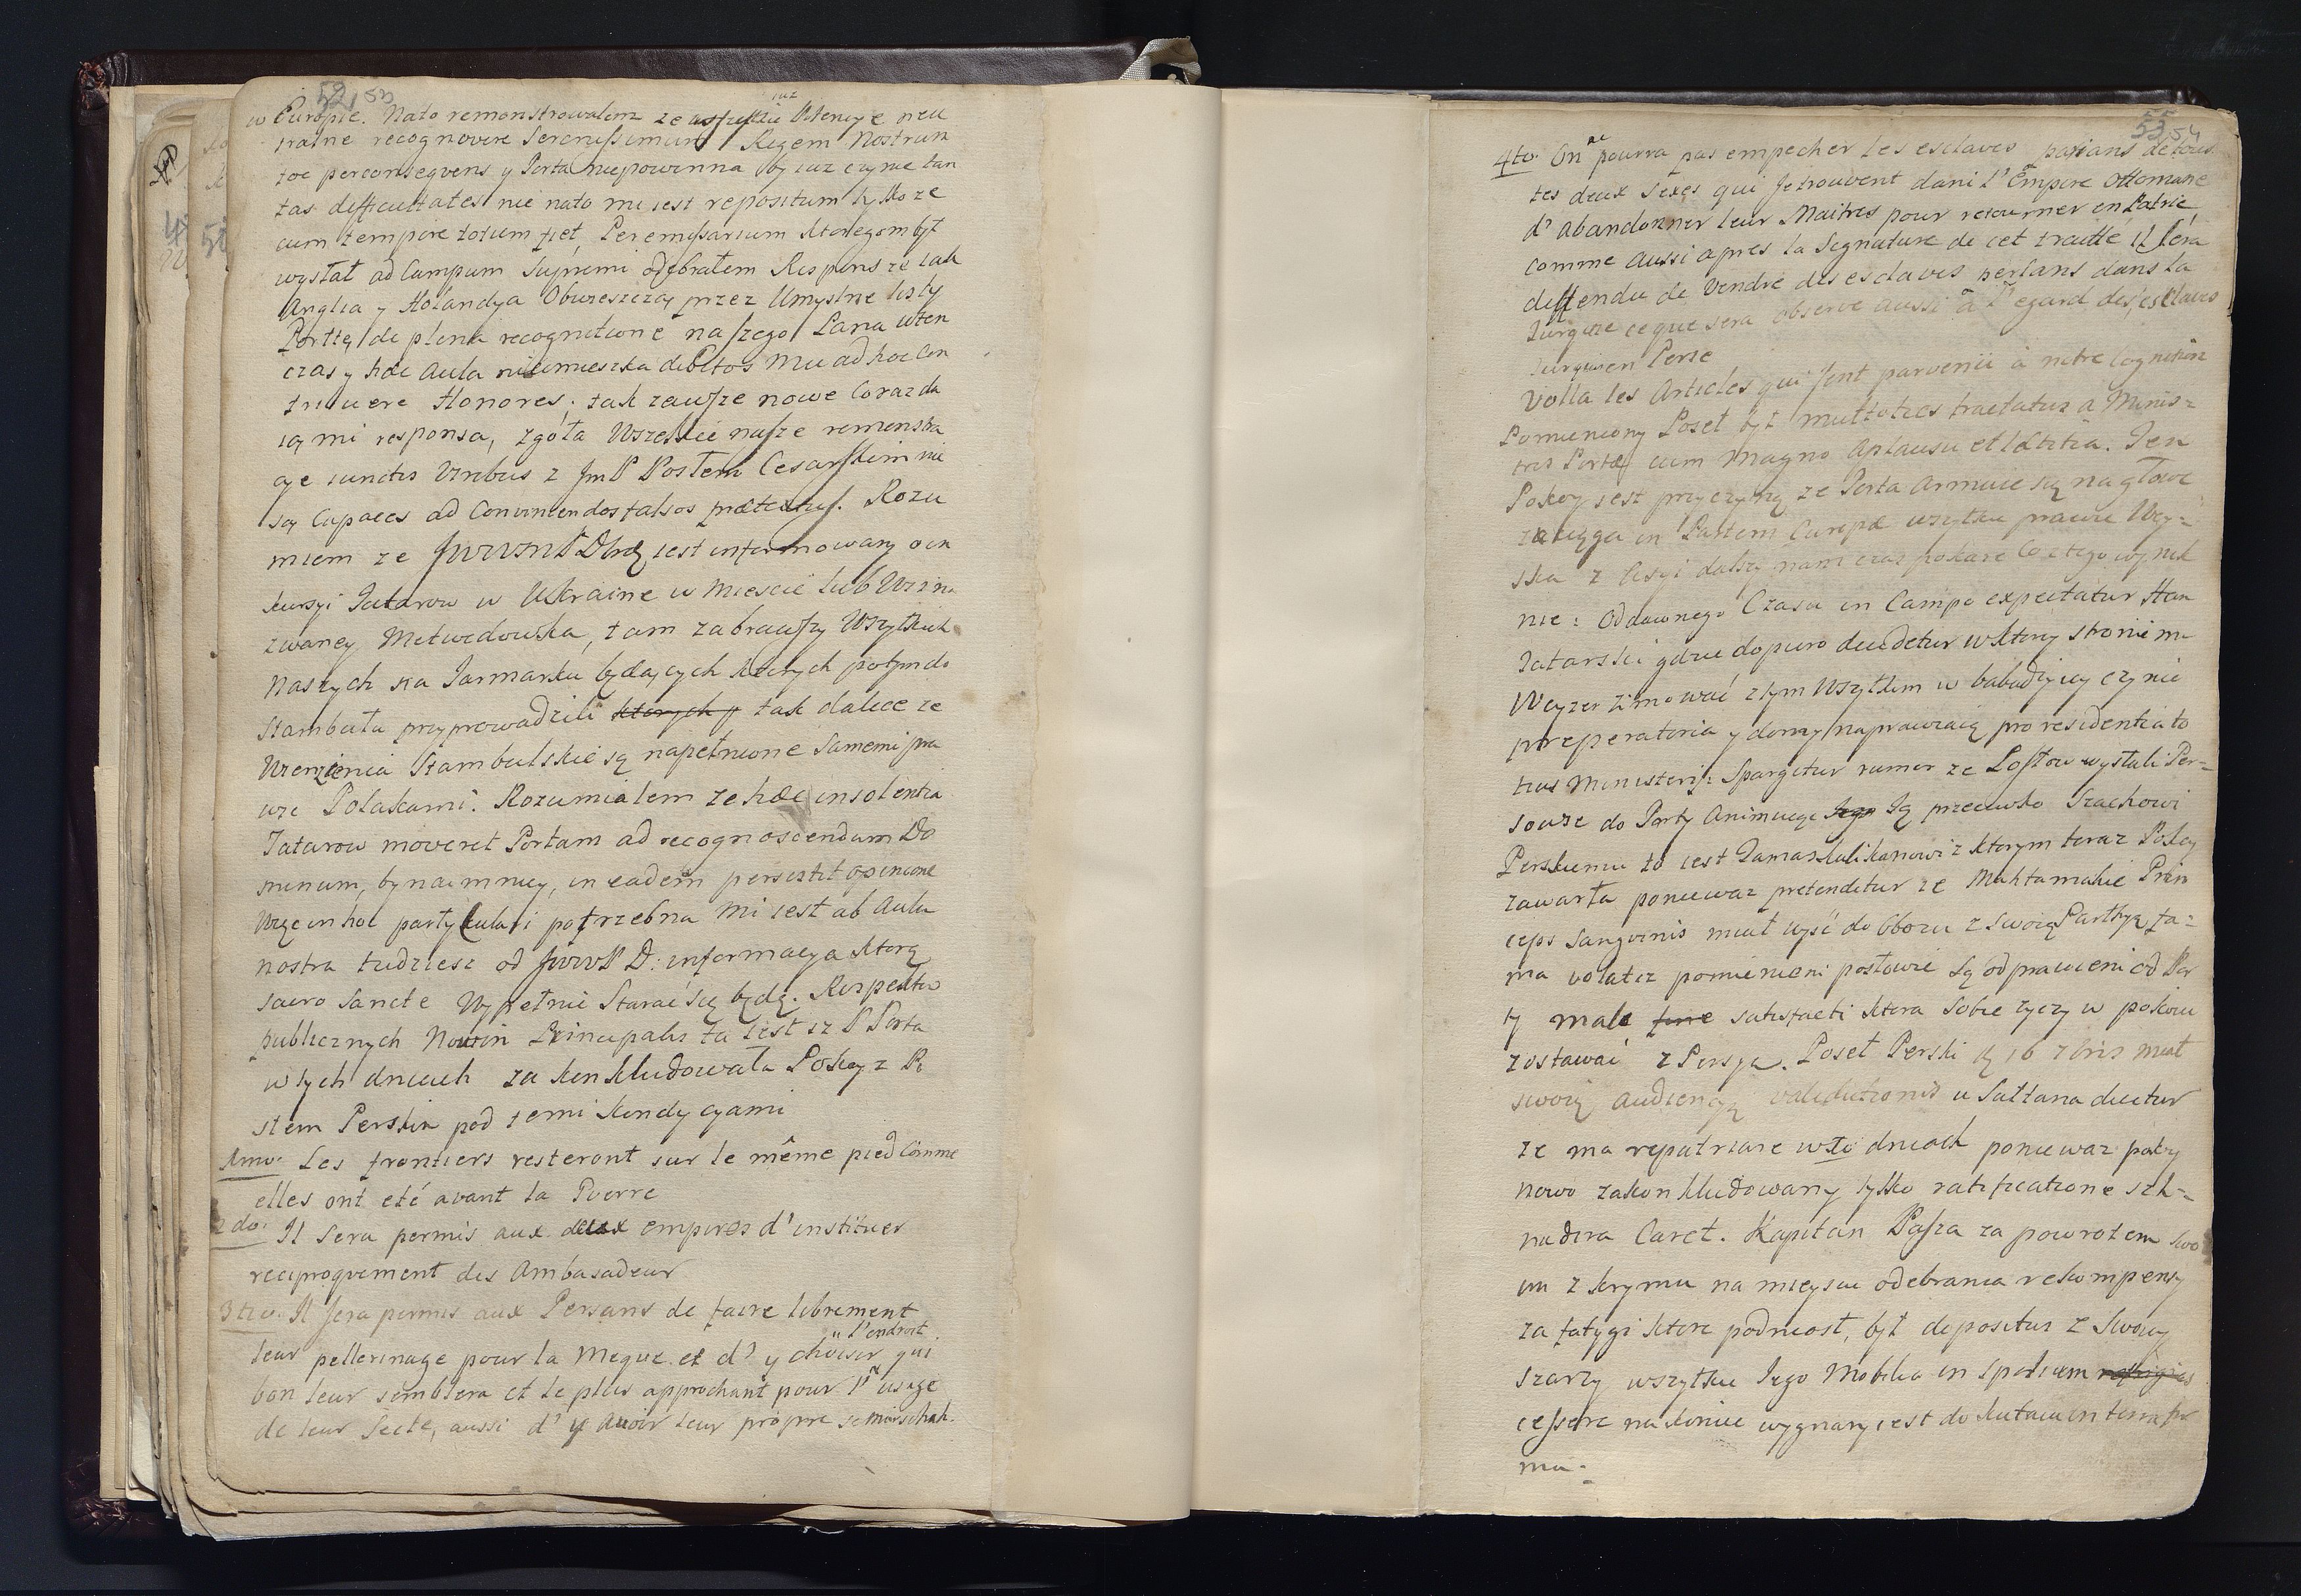 52 53
w Europie. Nato remonstrowałem ze wszystkie iuz Potencye neu
tralne recognovere Serenissimum Regem Nostrum
zoc perconseqvens y Porta niepowinna by iuz czynic tan
tas difficultates nie nato mi iest repositum tylko ze
cum tempore totum fiet, Per emissarium ktoregom był
wysłał ad Campum Supremi odebrałem Respons ze iak
Anglia y Holandya Obwieszczą przez Umyslne listy
Portę de plena recognitione naszego Pana wten
czas y haec Aula nieomieszka debitos Mu ad hoc Con
tribuere Honores; tak zawsze nowe Coraz da
ią mi responsa, zgoła Wszelkie nasze remonstra
cye iunctis Viribus z Jm P Posłem Cesarskim nie
są Capaces ad Convincendos falsos praetextus. Rozu
miem ze JWWMP Dhę iest informowany o in
kursyi Tatarow w Ukrainie w Miescie lub Wsi na
zwaney Metwedowska, tam zabrawszy Wszytkich
Naszych na Jarmarku będących ktorych potym do
Stambułu przyprowadzili ktorych p tak dalece ze
Więzienia Stambulskie są napełnione Samemi pra
wie Polakami. Rozumiałem ze haec insolentia
Tatarow moveret Portam ad recognoscendum Do
minum, bynaimniey, in eadem persistit opinione
Więc in hoc partykulari potrzebna mi iest ab Aula
nostra tudziesz od JWWP D: informacya ktorą
sacro sancte Wypełnic Starać się będę. Respektu
publicznych Nowin Principalis ta iest iz P Porta
w tych dniach za konkludowała Pokoy z Po
słem Perskim pod temi kondycyami
1mo: Les frontiers resteront sur le même pied Comme
elles ont eté avant la Guerre
2do: Il Sera permis aux deux empires d'instituer
reciproqvement des Ambasadeur
3tio. Il sera permis aux Persans de faire librement
leur pellerinage pour la Meque et d'y choisir l'endroit qui
bon leur semblera et le plus approchant pour l'usage
de leur Secte, aussi d'y avoir leur propre
55 54
4to. On ne pourra pas empecher les esclaves persans de tous
les deux Sexes qui se trouvent dans l'Empire Ottomane
d'Abandonner leur Maitres pour retourner en Patrie
Comme aussi apres la Signature de cet traitte il sera
deffendu de Vendre des esclaves persans dans la
Turquie ce que sera observé aussi à l'egard des esclaves
Turques en Perse
Voila les Articles qui sont parvenii à notre Cognition
Pomieniony Poseł był multoties tractatus a Minis=
tris Portae cum Magno Aplausu et laetitia. Ten
Pokoy iest przyczyną ze Porta Armuie się na głowę
zaciąga in Partem Europae wszytkie prawie Woy=
ska z Asyi dalszy nam czas pokaze Co z tego wynik
nie: Od dawnego Czasu in Campo expectatur Han
Tatarski gdzie dopiero decidetur w ktorey stronie ma
Wezyr zimować z tym Wszytkim w babadziycy czynią
preperatoria y domy naprawuią pro residentia to
tius Ministerij: Spargitur rumor ze Posłow wysłali Per=
sowie do Porty Animuiąc Jego Ją przeciwko Szachowi
Perskiemu to iest Tamaskulikanowi z ktorym teraz Pokoy
zawarła poniewaz pretenditur ze Prin
ceps Sangvinis miał wyść do Obozu z Swoią Parthyą fa=
ma volat iz pomienieni posłowie są odprawieni od Por
ty male fore satisfacti ktora sobie zyczy w pokoiu
zostawać z Persyą. Poseł Perski d 16 7bris miał
swoią audiencyą valedictionis u Sułtana dicitur
ze ma repatriare w 10 dniach poniewaz pokoy
nowo zakonkludowany tylko ratificatione szh=
nadira Caret. Kapitan Pasza za powrotem swo
im z krymu na mieysce odebrania rekompensy
za fatygi ktore podniosł, był depositus z swoiey
szarzy wszytkie Jego Mobilia in spolium
cessere nakoniec wygnany iest do kutaiu in
ma.